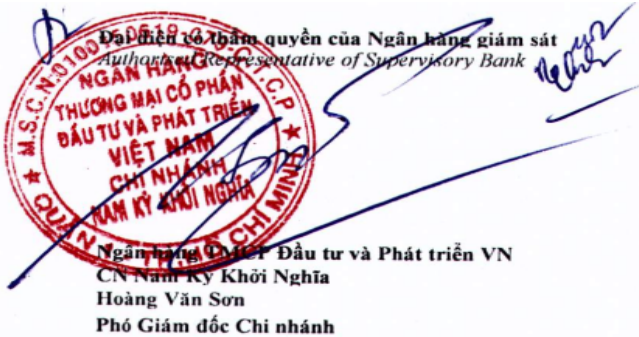 Đại diện có thẩm quyền của Ngân hàng giám sát
Authorised Representative of Supervisory Bank
M.S.C.N:
C.T.C.P
NGÂN HÀNG
THƯƠNG MẠI CỔ PHẦN
ĐẦU TƯ VÀ PHÁT TRIỂN
VIỆT NAM
CHI NHÁNH
NAM KỲ KHỞI NGHĨA
QUẬN
TP. HỒ CHÍ MINH
Ngân hàng TMCP Đầu tư và Phát triển VN
CN Nam Kỳ Khởi Nghĩa
Hoàng Văn Sơn
Phó Giám đốc Chi nhánh